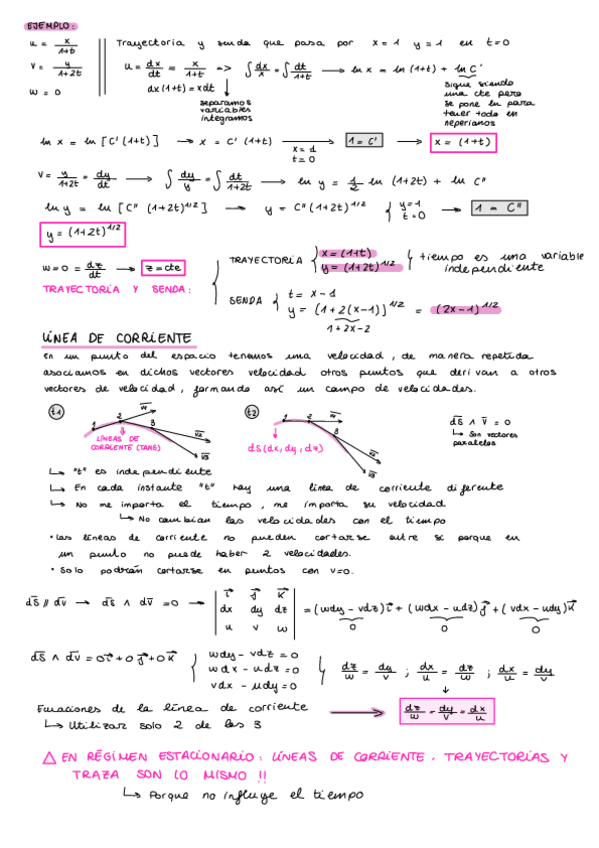 EJEMPLO:
u = x/1+t
v = y/1+2t
w = 0
Trayectoria y senda que pasa por x=1 y=1 en t=0
u = dx/dt = x/1+t => ∫ dx/x = ∫ dt/1+t → ln x = ln (1+t) + ln C'
dx (1+t) = x dt
separamos variables integramos
sigue siendo una cte pero se pone ln para tener todo en neperianos
ln x = ln [C' (1+t)] → x = C' (1+t) → x=1 t=0 1 = C' → x = (1+t)
v = y/1+2t = dy/dt → ∫ dy/y = ∫ dt/1+2t → ln y = 1/2 ln (1+2t) + ln C''
ln y = ln [C'' (1+2t)^1/2] → y = C'' (1+2t)^1/2 { y=1 t=0 → 1 = C''
y = (1+2t)^1/2
w=0 = dz/dt → z=cte
TRAYECTORIA Y SENDA:
TRAYECTORIA { x=(1+t) y=(1+2t)^1/2 { tiempo es una variable independiente
SENDA { t = x-1
y = (1+2(x-1))^1/2 = (2x-1)^1/2
1+2x-2
LÍNEA DE CORRIENTE
en un punto del espacio tenemos una velocidad, de manera repetida
asociamos en dichos vectores velocidad otros puntos que derivan a otros
vectores de velocidad, formando así un campo de velocidades.
t1
1 2 3
v1
v2
v3
LÍNEAS DE CORRIENTE (TANG)
t2
1 2 3
v1
v2
v3
dS(dx, dy, dz)
dS ∧ V = 0
↳ Son vectores paralelos
↳ "t" es independiente
↳ En cada instante "t" hay una línea de corriente diferente
↳ No me importa el tiempo, me importa su velocidad
↳ No cambian las velocidades con el tiempo
• Las líneas de corriente no pueden cortarse entre si porque en
un punto no puede haber 2 velocidades.
• Solo podrán cortarse en puntos con v=0.
dS // dv → dS ∧ dv = 0 → | i j k | dx dy dz | u v w | = (wdy - vdz) i + (wdx - udz) j + (vdx - udy) k
0 0 0
dS ∧ dv = 0i + 0j + 0k { wdy - vdz = 0
wdx - udz = 0
vdx - udy = 0
dz/w = dy/v ; dx/u = dz/w ; dx/u = dy/v
Ecuaciones de la línea de corriente → dz/w = dy/v = dx/u
↳ Utilizar solo 2 de las 3
△ EN RÉGIMEN ESTACIONARIO: LÍNEAS DE CORRIENTE, TRAYECTORIAS Y
TRAZA SON LO MISMO !!
↳ Porque no influye el tiempo